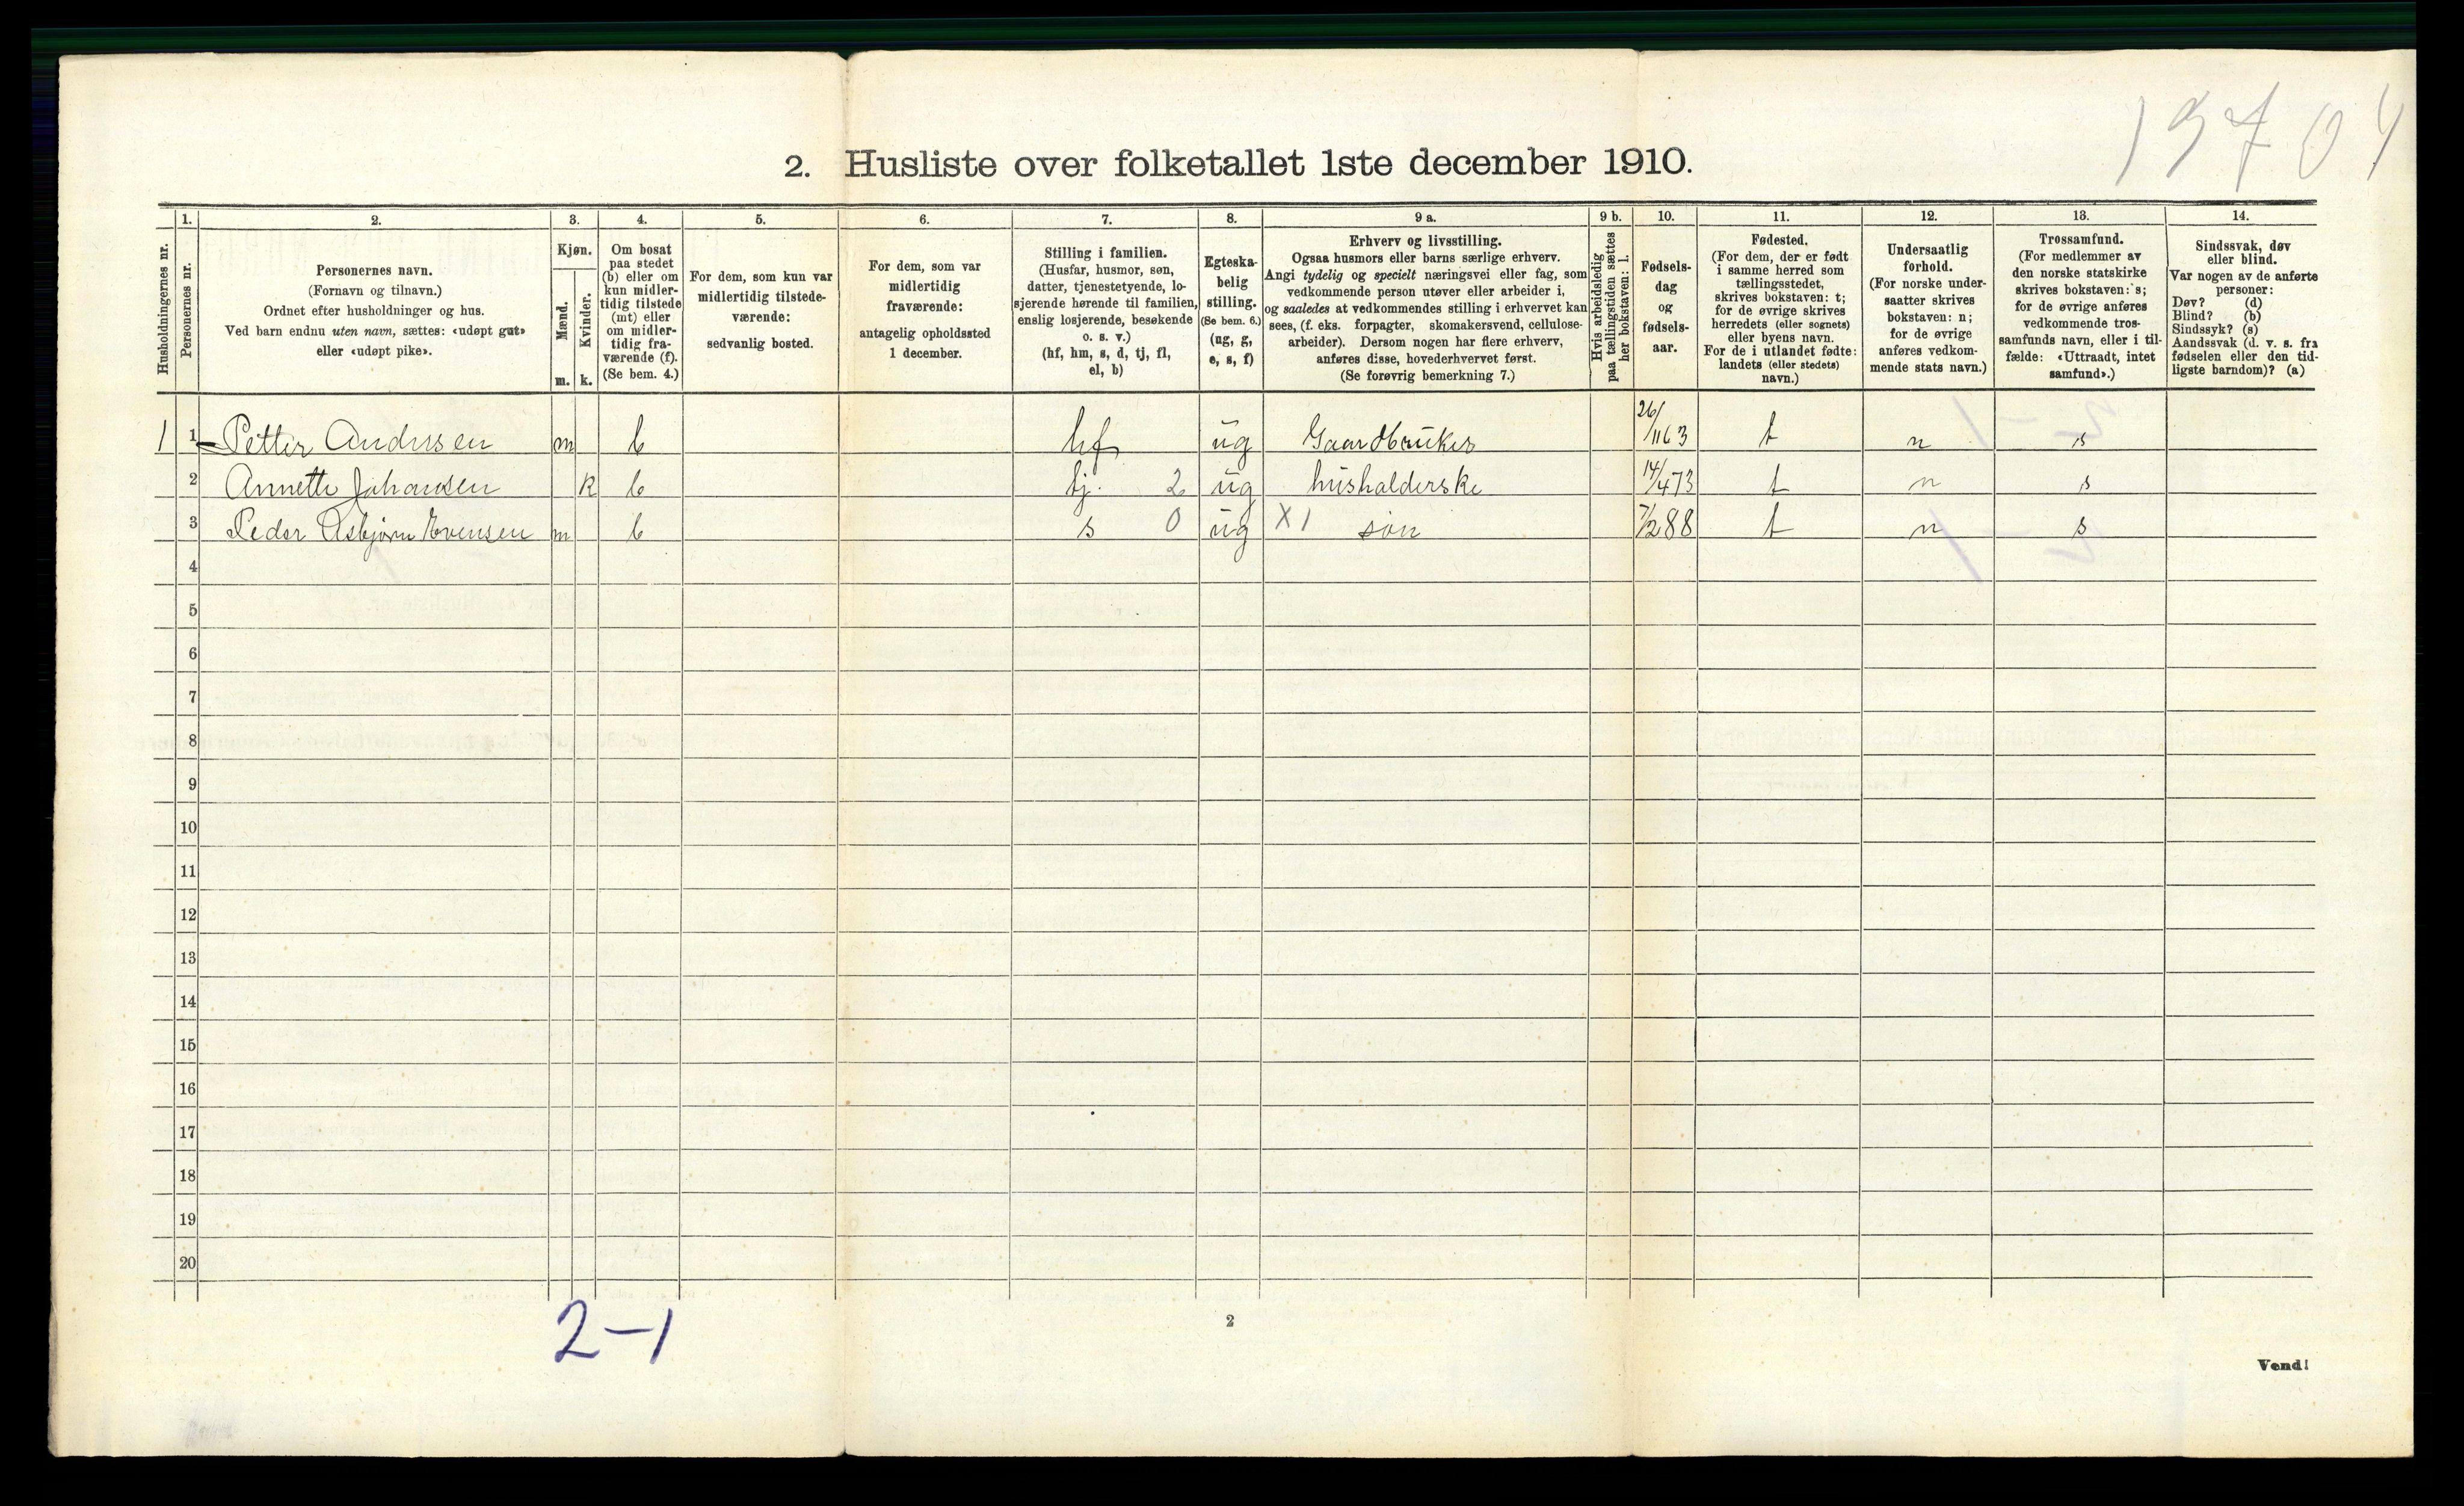 19704
2. Husliste over folketallet 1ste december 1910.
Husholdningernes nr.
1.
Personernes nr.
2.
Personernes navn.
(Fornavn og tilnavn.)
Ordnet efter husholdninger og hus.
Ved barn endnu uten navn, sættes: «udøpt gut»
eller «udøpt pike».
3.
Kjøn.
Mænd.
Kvinder.
m. k.
4.
Om bosat
paa stedet
(b) eller om
kun midler-
tidig tilstede
(mt) eller
om midler-
tidig fra-
værende (f).
(Se bem. 4.)
5.
For dem, som kun var
midlertidig tilstede-
værende:
sedvanlig bosted.
6.
For dem, som var
midlertidig
fraværende:
antagelig opholdssted
1 december.
7.
Stilling i familien.
(Husfar, husmor, søn,
datter, tjenestetyende, lo-
sjerende hørende til familien,
enslig losjerende, besøkende
o. s. v.)
(hf, hm, s, d, tj, fl,
el, b)
8.
Egteska-
belig
stilling.
(Se bem. 6.)
(ug, g,
e, s, f)
9 a.
Erhverv og livsstilling.
Ogsaa husmors eller barns særlige erhverv.
Angi tydelig og specielt næringsvei eller fag, som
vedkommende person utøver eller arbeider i,
og saaledes at vedkommendes stilling i erhvervet kan
sees, (f. eks. forpagter, skomakersvend, cellulose-
arbeider). Dersom nogen har flere erhverv,
anføres disse, hovederhvervet først.
(Se forøvrig bemerkning 7.)
9 b.
Hvis arbeidsledig
paa tællingstiden sættes
her bokstaven: l.
10.
Fødsels-
dag
og
fødsels-
aar.
11.
Fødested.
(For dem, der er født
i samme herred som
tællingsstedet,
skrives bokstaven: t;
for de øvrige skrives
herredets (eller sognets)
eller byens navn.
For de i utlandet fødte:
landets (eller stedets)
navn.)
12.
Undersaatlig
forhold.
(For norske under-
saatter skrives
bokstaven: n;
for de øvrige
anføres vedkom-
mende stats navn.)
13.
Trossamfund.
(For medlemmer av
den norske statskirke
skrives bokstaven: s;
for de øvrige anføres
vedkommende tros-
samfunds navn, eller i til-
fælde: «Uttraadt, intet
samfund».)
14.
Sindssvak, døv
eller blind.
Var nogen av de anførte
personer:
Døv? (d)
Blind? (b)
Sindssyk? (s)
Aandssvak (d. v. s. fra
fødselen eller den tid-
ligste barndom)? (a)
1 1 Petter Anderssen m b hf ug Gaardbruker 26/11 63 t n s
2 Annette Johansen k b tj. 2 ug husholderske 14/4 73 t n s
3 Peder Asbjørn Evensen m b s 0 ug X 1 søn 7/2 88 t n s
4
5
6
7
8
9
10
11
12
13
14
15
16
17
18
19
20
2-1
2
Vend!